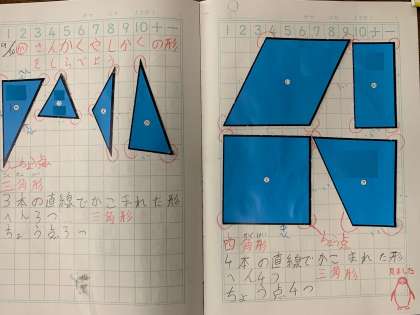 1 2 3 4 5 6 7 8 9 10 十 一
さんかくやしかくの形
をしらべよう
ちょう点
三角形
3本の直線でかこまれた形
へん3つ 三角形
ちょう点3つ
1 2 3 4 5 6 7 8 9 10 十 一
へん
ちょう点
四角形
4本の直線でかこまれた形
へん4つ 三角形
ちょう点4つ
見ました